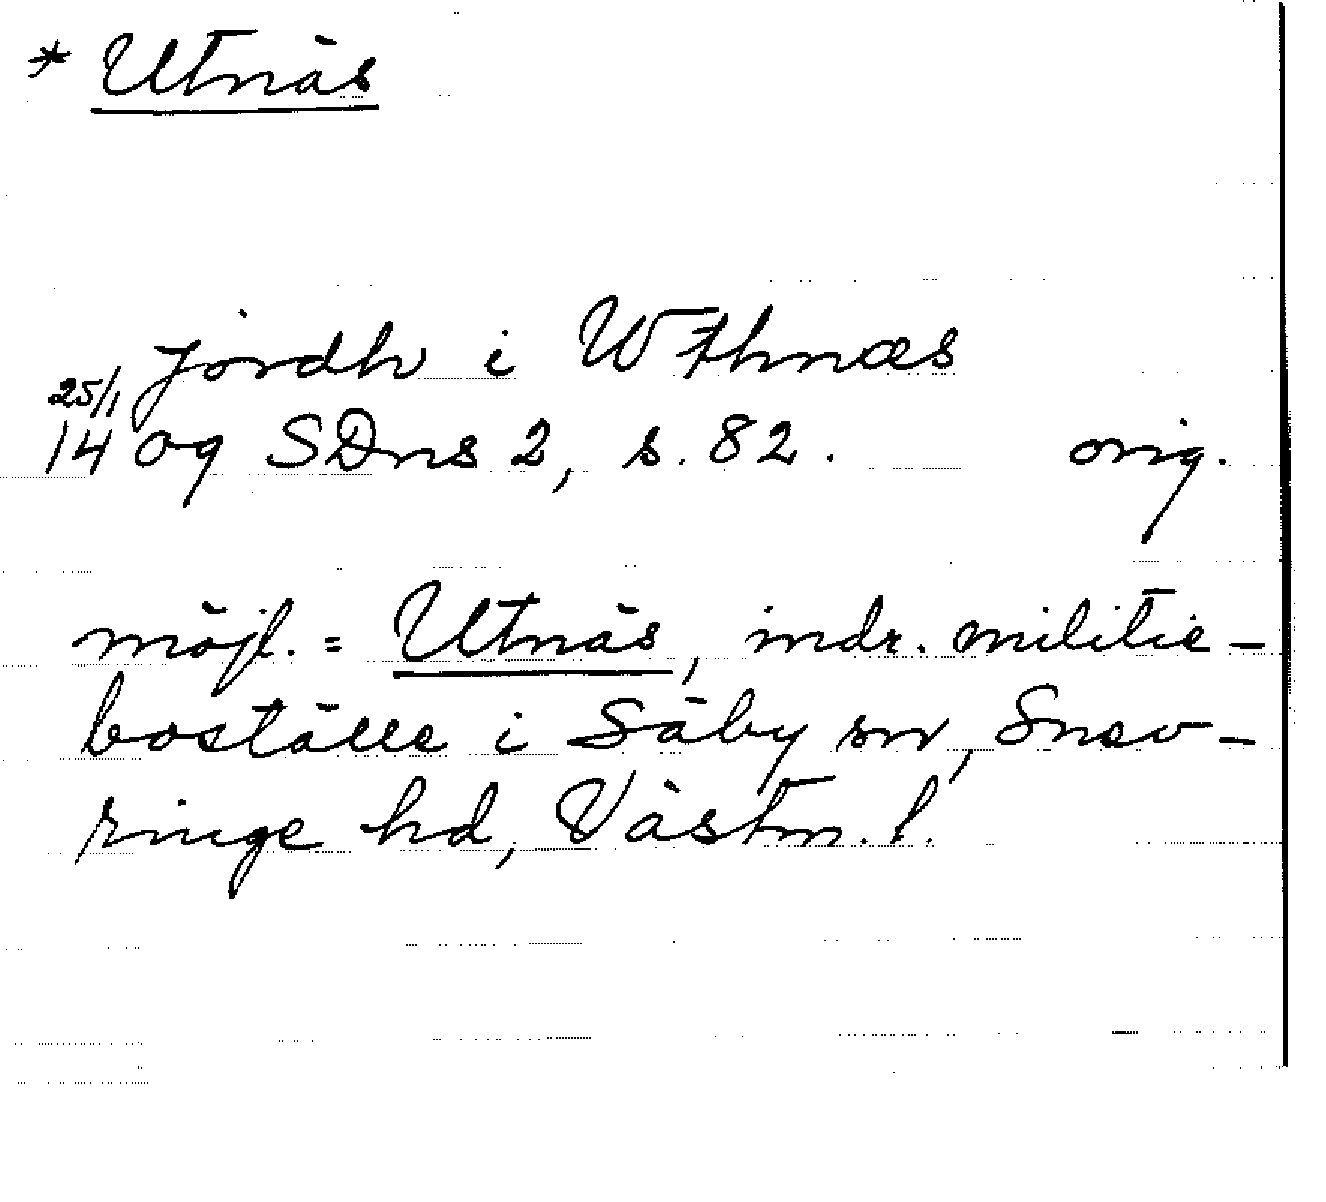 * Utnäs
jordh i Wthnæs
25/1
14 09 SDns 2, s. 82. orig.
möjl. = Utnäs, indr. militie-
boställe i Säby sn, Snev-
ringe hd, Västm. l.